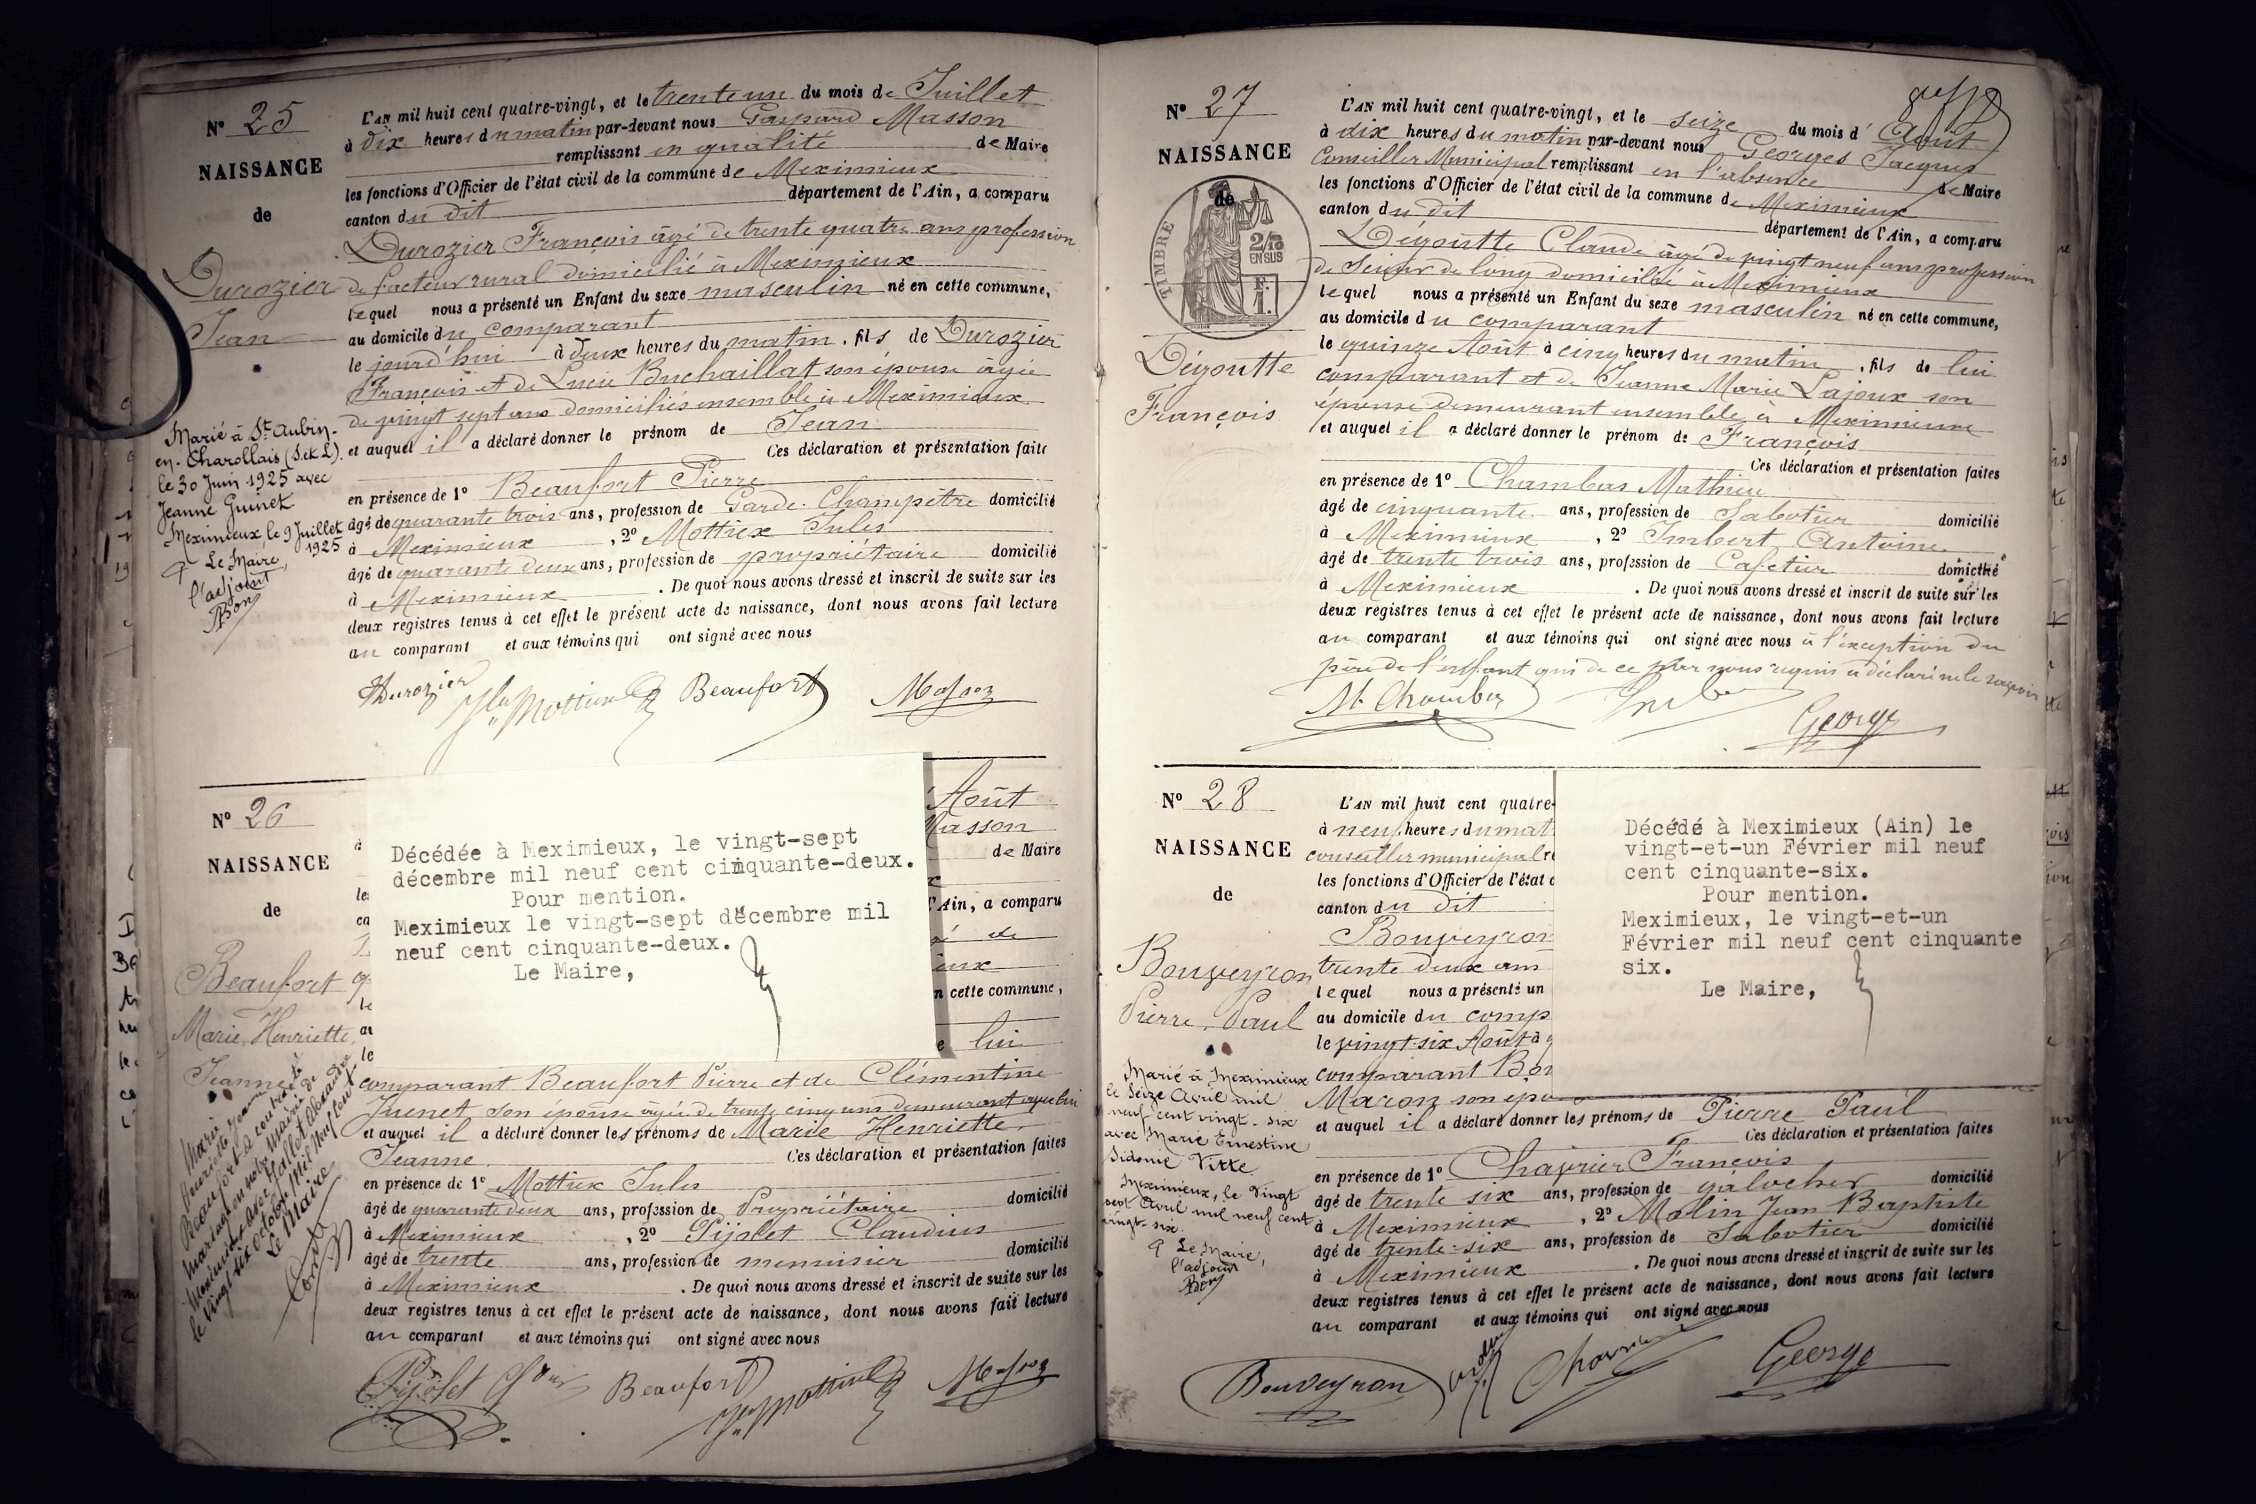 Nº 25
NAISSANCE
de
Durozier
Jean
Marié à St Aubin-
en-Charollais (S. et L).
le 30 Juin 1925 avec
Jeanne Guinet
Meximieux le 9 Juillet
1925
Le Maire,
l'adjoint
L'AN mil huit cent quatre-vingt, et le trente un du mois de Juillet
à dix heures du matin par-devant nous Gaspard Masson
remplissant en qualité de Maire
les fonctions d'Officier de l'état civil de la commune de Meximieux
canton du dit département de l'Ain, a comparu
Durozier François âgé de trente quatre ans profession
de facteur rural domicilié à Meximieux
lequel nous a présenté un Enfant du sexe masculin né en cette commune,
au domicile du comparant
le jourd'hui à deux heures du matin, fils de Durozier
François et de Lucie Buchaillat son épouse âgée
de vingt sept ans domiciliés ensemble à Meximieux
et auquel il a déclaré donner le prénom de Jean
Ces déclaration et présentation faite
en présence de 1º Beaufort Pierre
âgé de quarante trois ans, profession de Garde-Champêtre domicilié
à Meximieux, 2º Mottiex Jules
âgé de quarante deux ans, profession de propriétaire domicilié
à Meximieux. De quoi nous avons dressé et inscrit de suite sur les
deux registres tenus à cet effet le présent acte de naissance, dont nous avons fait lecture
au comparant et aux témoins qui ont signé avec nous
Durozier Beaufort Masson
Nº 26
NAISSANCE
de
Beaufort
Marie Henriette
Jeanne
Marie
Henriette Jeanne
Beaufort a contracté
mariage en notre Mairie de
Meximieux avec
le vingt six octobre mil neuf cent
Le Maire
Août
Masson
de Maire
l'Ain, a comparu
Décédée à Meximieux, le vingt-sept
décembre mil neuf cent cinquante-deux.
Pour mention.
Meximieux le vingt-sept décembre mil
neuf cent cinquante-deux.
Le Maire,
n cette commune,
e lui
comparant Beaufort Pierre et de Clémentine
Juenet son épouse âgée de trente cinq ans demeurant avec lui
et auquel il a déclaré donner les prénoms de Marie Henriette
Jeanne Ces déclaration et présentation faites
en présence de 1º Mottiex Jules
âgé de quarante deux ans, profession de Propriétaire domicilié
à Meximieux, 2º Pijolet Claudius
âgé de trente ans, profession de menuisier domicilié
à Meximieux. De quoi nous avons dressé et inscrit de suite sur les
deux registres tenus à cet effet le présent acte de naissance, dont nous avons fait lecture
au comparant et aux témoins qui ont signé avec nous
Pijolet Beaufort Masson
Nº 27
NAISSANCE
de
TIMBRE
2/10
EN SUS
F.
1.
Dégoutte
François
L'AN mil huit cent quatre-vingt, et le seize du mois d'Août
à dix heures du matin par-devant nous Georges Jacques
Conseiller Municipal remplissant en l'absence de Maire
les fonctions d'Officier de l'état civil de la commune de Meximieux
canton du dit département de l'Ain, a comparu
Dégoutte Claude âgé de vingt neuf ans profession
de Scieur de long domicilié à Meximieux
lequel nous a présenté un Enfant du sexe masculin né en cette commune,
au domicile du comparant
le quinze Août à cinq heures du matin, fils de lui
comparant et de Jeanne Marie Lajoux son
épouse demeurant ensemble à Meximieux
et auquel il a déclaré donner le prénom de François
Ces déclaration et présentation faites
en présence de 1º Chambas Mathieu
âgé de cinquante ans, profession de Sabotier domicilié
à Meximieux, 2º Imbert Antoine
âgé de trente trois ans, profession de Cafetier domicilié
à Meximieux. De quoi nous avons dressé et inscrit de suite sur les
deux registres tenus à cet effet le présent acte de naissance, dont nous avons fait lecture
au comparant et aux témoins qui ont signé avec nous à l'exception du
père de l'enfant qui de ce par nous requis a déclaré ne le savoir
George
Nº 28
NAISSANCE
de
Bouveyron
Pierre Paul
Marié à Meximieux
le Seize Avril mil
neuf cent vingt-six
avec Marie Ernestine
Sidonie Vitte
Meximieux, le Vingt
sept Avril mil neuf cent
vingt-six.
Le Maire,
l'adjoint
L'AN mil huit cent quatre-
à neuf heures du mat
conseiller municipal re
les fonctions d'Officier de l'état c
canton du dit
Bouveyron
trente deux ans
lequel nous a présenté un
au domicile du comp
le vingt-six Août à
comparant Bou
Décédé à Meximieux (Ain) le
vingt-et-un Février mil neuf
cent cinquante-six.
Pour mention.
Meximieux, le vingt-et-un
Février mil neuf cent cinquante
six.
Le Maire,
Maron son épou
et auquel il a déclaré donner les prénoms de Pierre Paul
Ces déclaration et présentation faites
en présence de 1º Chavrier François
âgé de trente six ans, profession de galocher domicilié
à Meximieux, 2º Molin Jean Baptiste
âgé de trente-six ans, profession de Sabotier domicilié
à Meximieux. De quoi nous avons dressé et inscrit de suite sur les
deux registres tenus à cet effet le présent acte de naissance, dont nous avons fait lecture
au comparant et aux témoins qui ont signé avec nous
Bouveyron George